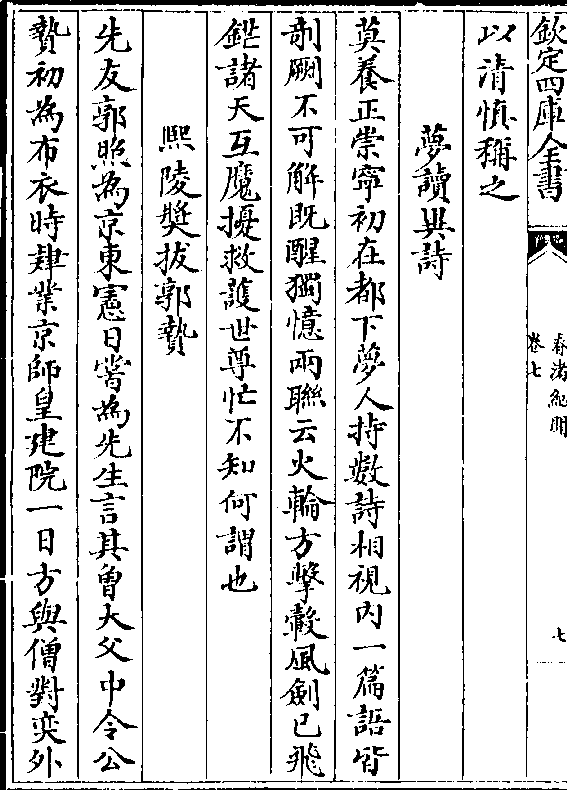 欽定四庫全書
春渚紀聞
卷七
七
以清慎稱之
夢讀異詩
莫養正崇寧初在都下夢人持數詩相視内一篇語皆
剞劂不可解既醒獨憶兩聯云火輪方擊轂風劍已飛
鋩諸天互魔擾救護世尊忙不知何謂也
熙陵奬拔郭贄
先友郭照為京東憲日嘗為先生言其曾大父中令公
贄初為布衣時肄業京師皇建院一日方與僧對奕外